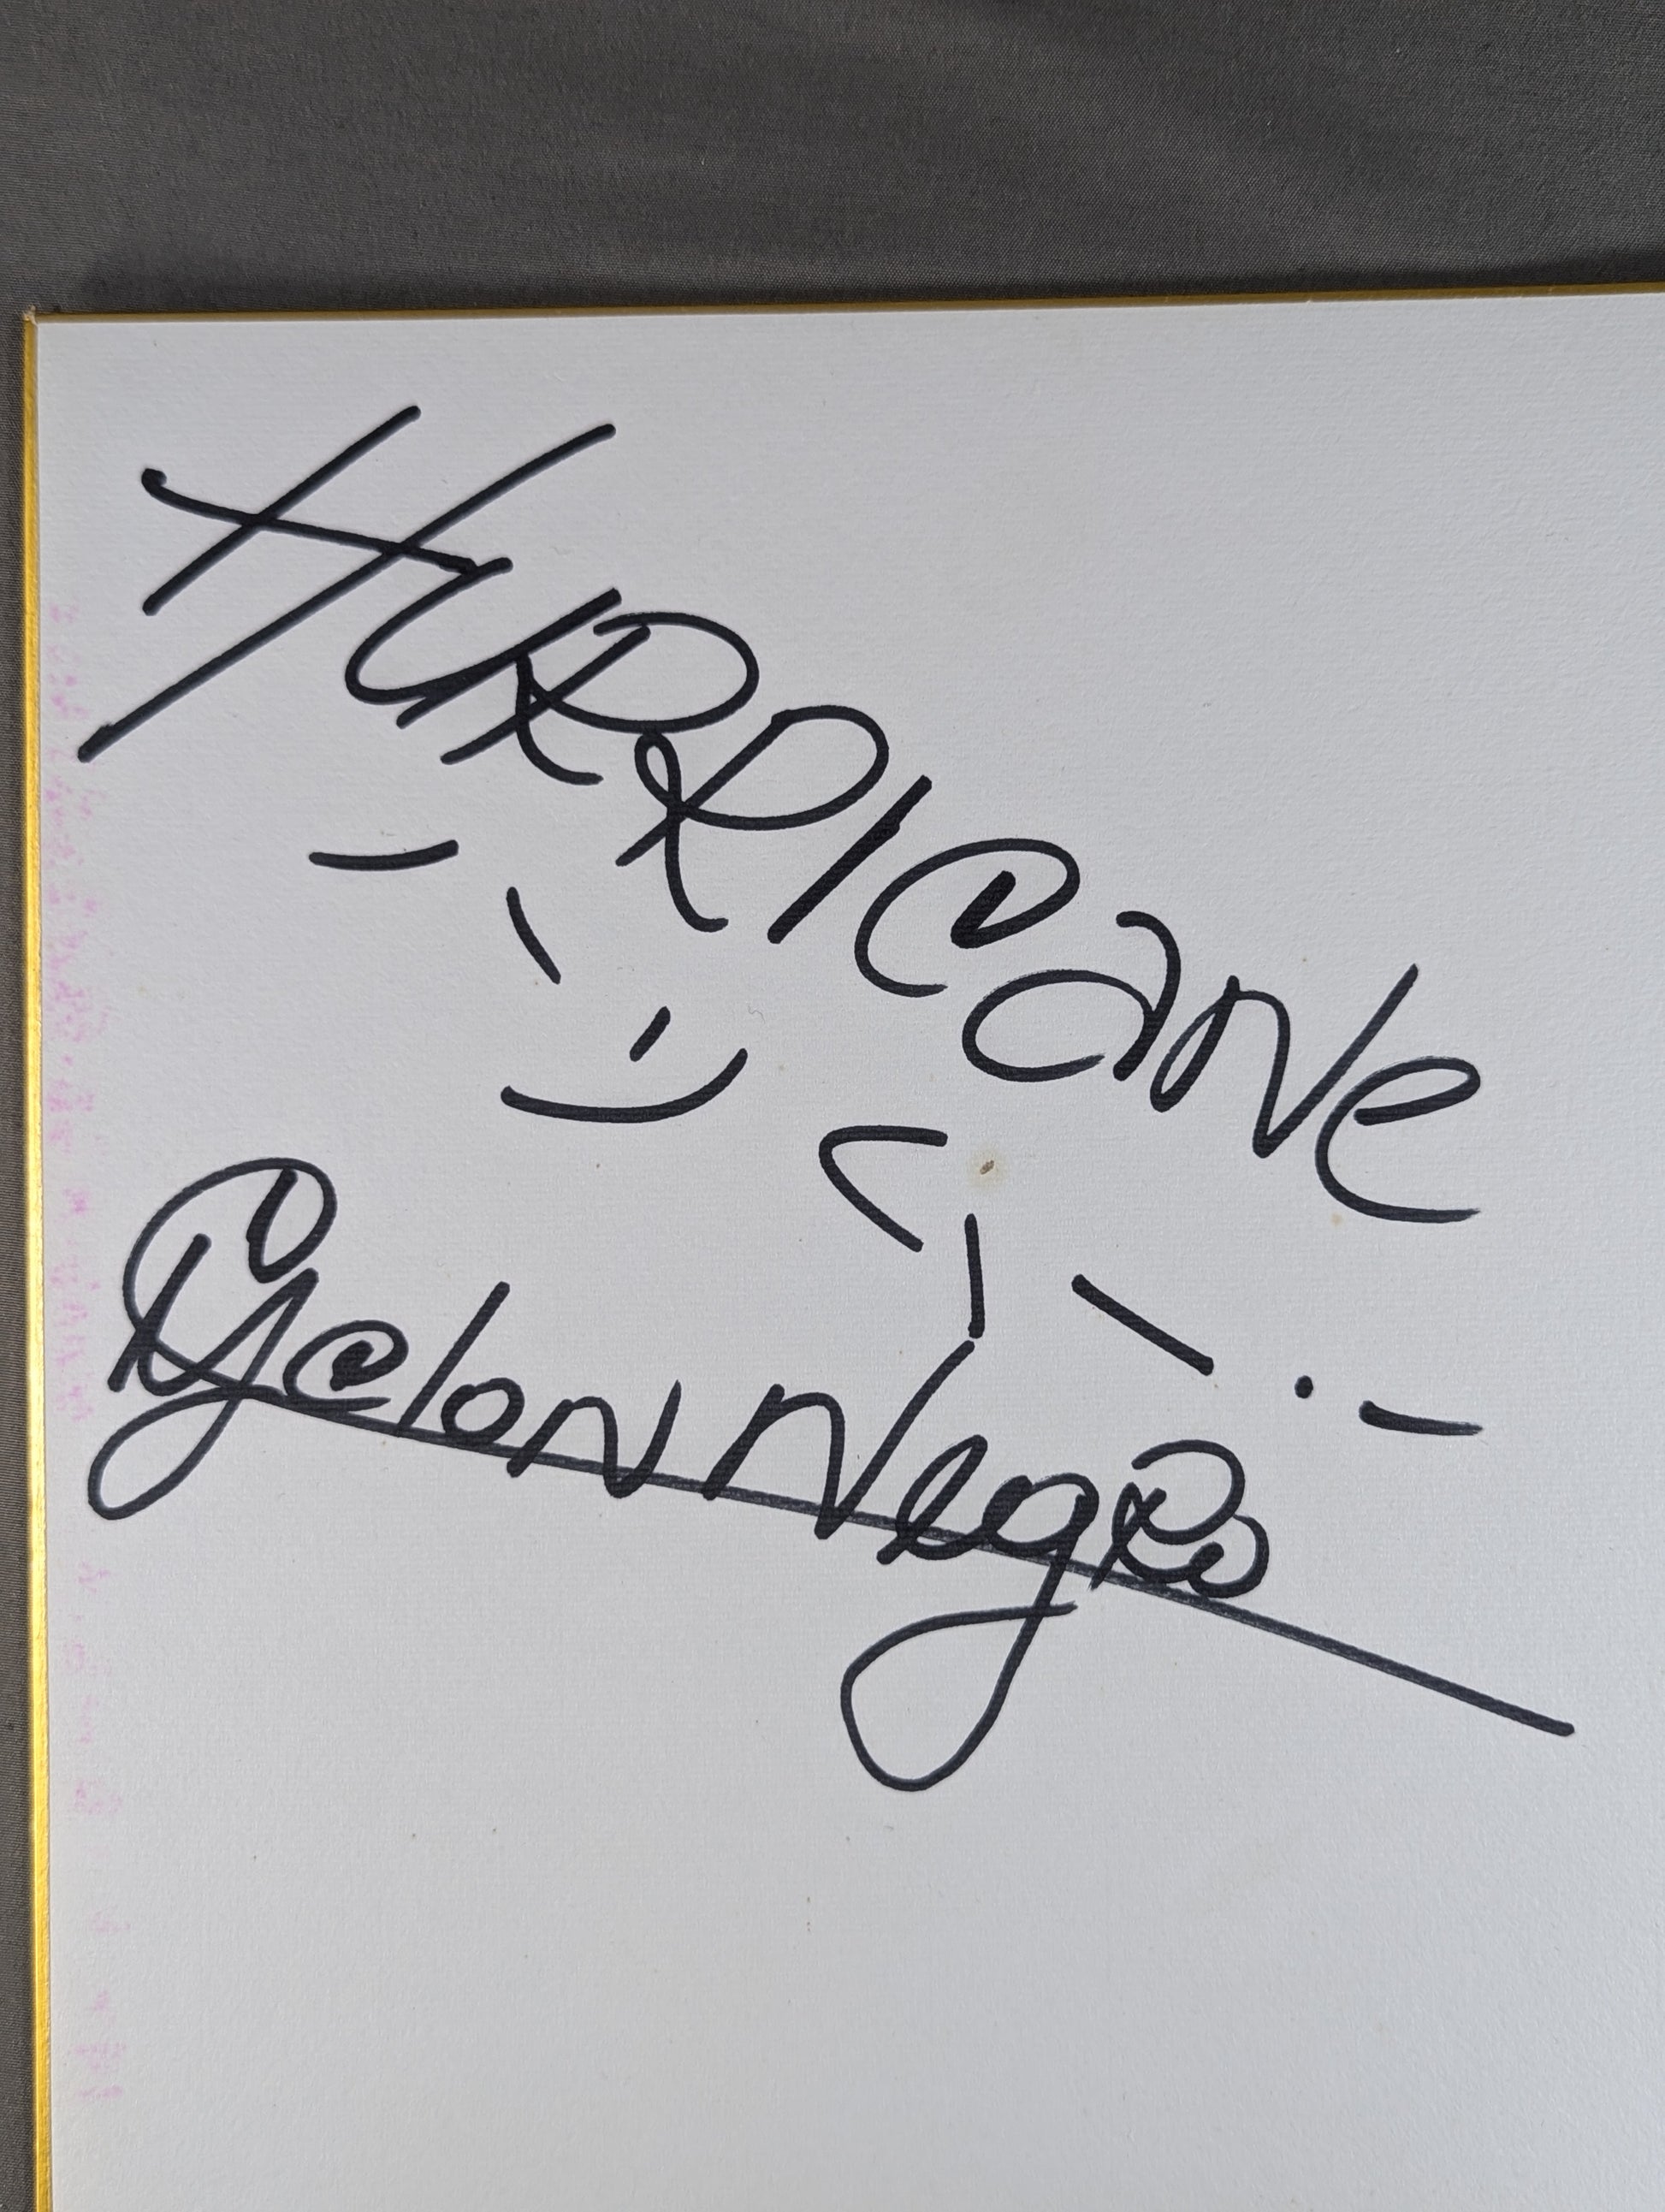 HURRICaNe
CyclonNegRo